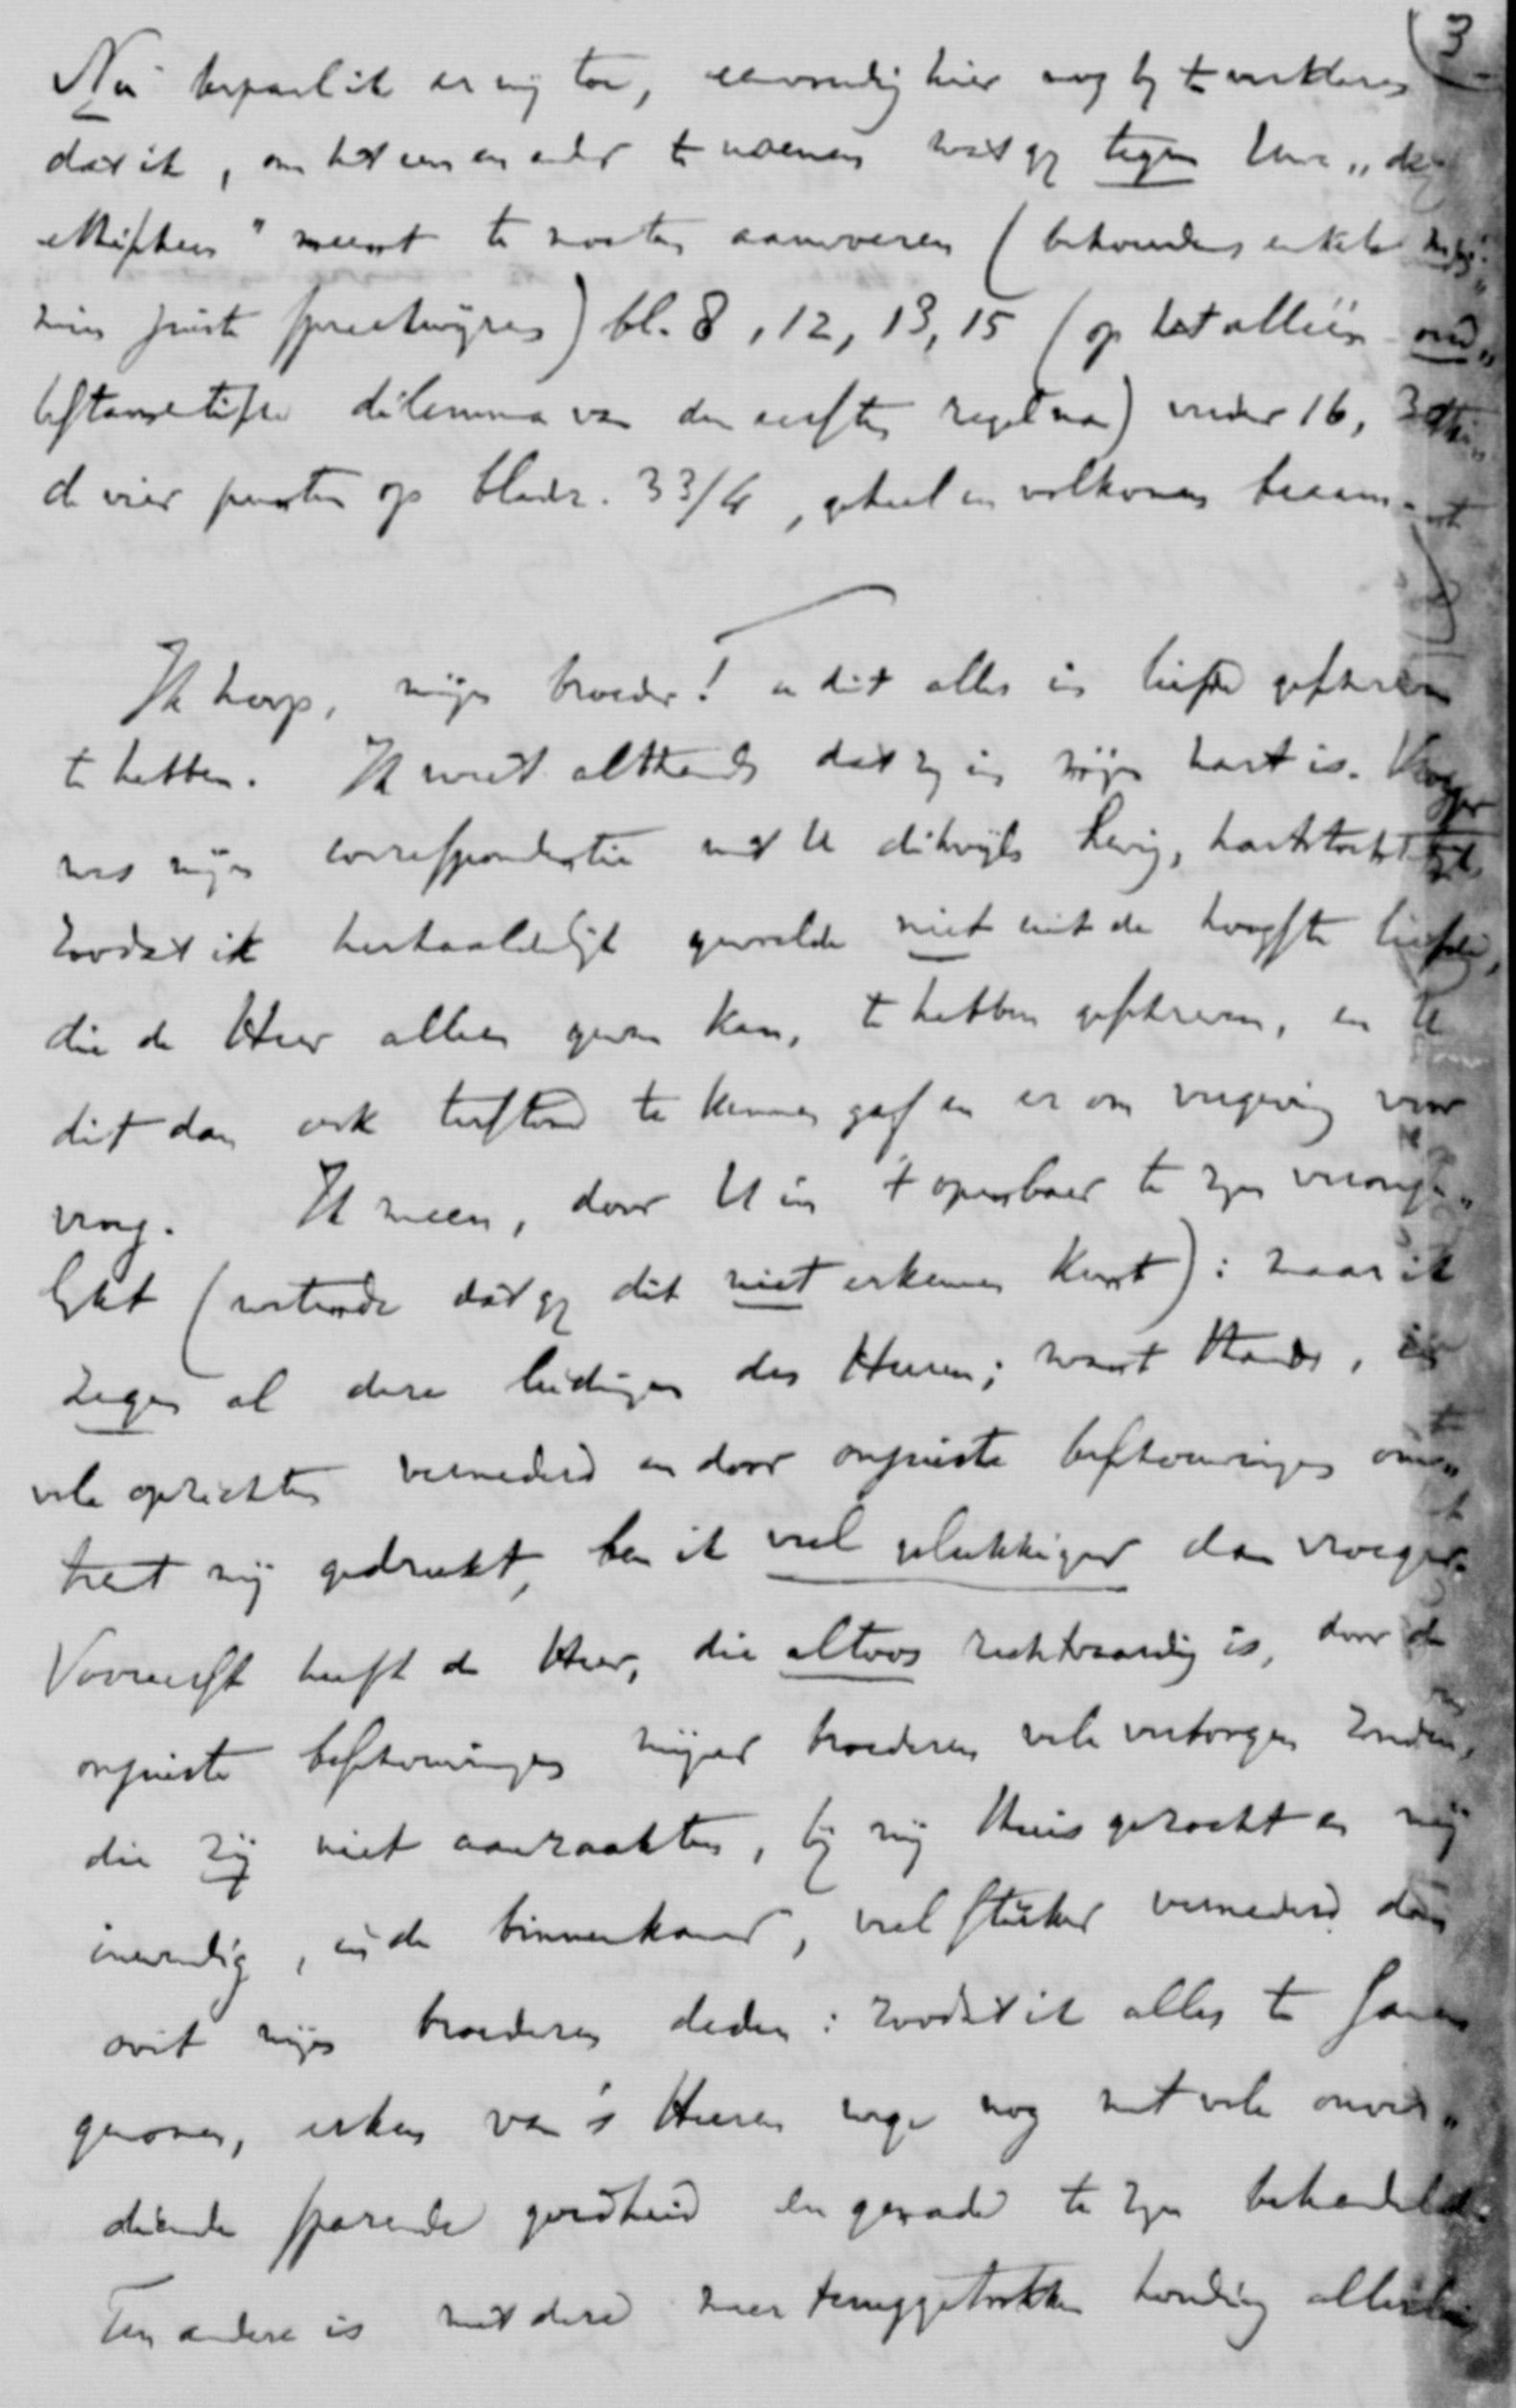 (3
Nu bepaal ik er mij toe, eenvoudig hier nog bij te verklaren
dat ik, om het een en ander te noemen wat gij tegen Uwe „de
ethischen" meent te moeten aanvoeren (behoudens enkele
min juiste spreekwijzen) bl. 8, 12, 13, 15 (op het alleen ond„
dilemma van den eersten regel na) verder 16, 3
de vier punten op bladz. 33/4, geheel en volkomen beaam.
Ik hoop, mijn broeder! U dit alles in liefde geschreven
te hebben. Ik weet althans dat zij in mijn hart is. Vroeger
was mijn correspondentie met U dikwijls hevig, hartstochtelijk
zoodat ik herhaaldelijk gevoelde niet uit de hoogste liefde,
die de Heer alleen geven kan, te hebben geschreven, en U
dit dan ook terstond te kennen gaf en er om vergeving voor
vroeg. Ik meen, door U in 't openbaar te zijn veronge„
lijkt (wetende dat gij dit niet erkennen kunt): maar ik
zegen al deze leidingen des Heeren; want thans, in
vele opzichten vernederd en door onjuiste beschouwingen om„
trent mij gedrukt, ben ik veel gelukkiger dan vroeger.
Vooreerst heeft de Heer, die altoos rechtvaardig is, door de
onjuiste beschouwingen mijner broederen vele verborgen zonden,
die zij niet aanraakten, bij mij thuis gezocht en mij
inwendig, in de binnenkamer, veel sterker vernederd dan
ooit mijn broederen deden: zoodat ik alles te samen
genomen, erken van 's Heeren wege nog met vele onver„
diende sparende goedheid en genade te zijn behandeld.
Ten andere is met deze meer teruggetrokken houding allerlei